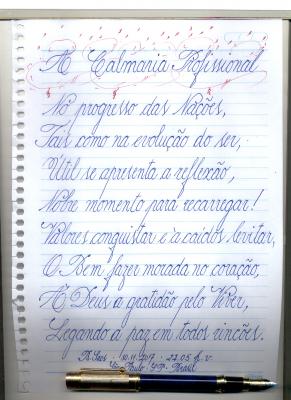 A Calmaria Profissional
No progresso das Nações,
Tais como na evolução do ser,
Útil se apresenta a reflexão,
Nobre momento para recarregar!
Valores conquistar e a caídos levitar,
O Bem, fazer morada no coração,
A Deus a gratidão pelo Viver,
Legando a paz em todos rincões.
10.11.2017 - 27.05
São Paulo - SP - Brasil